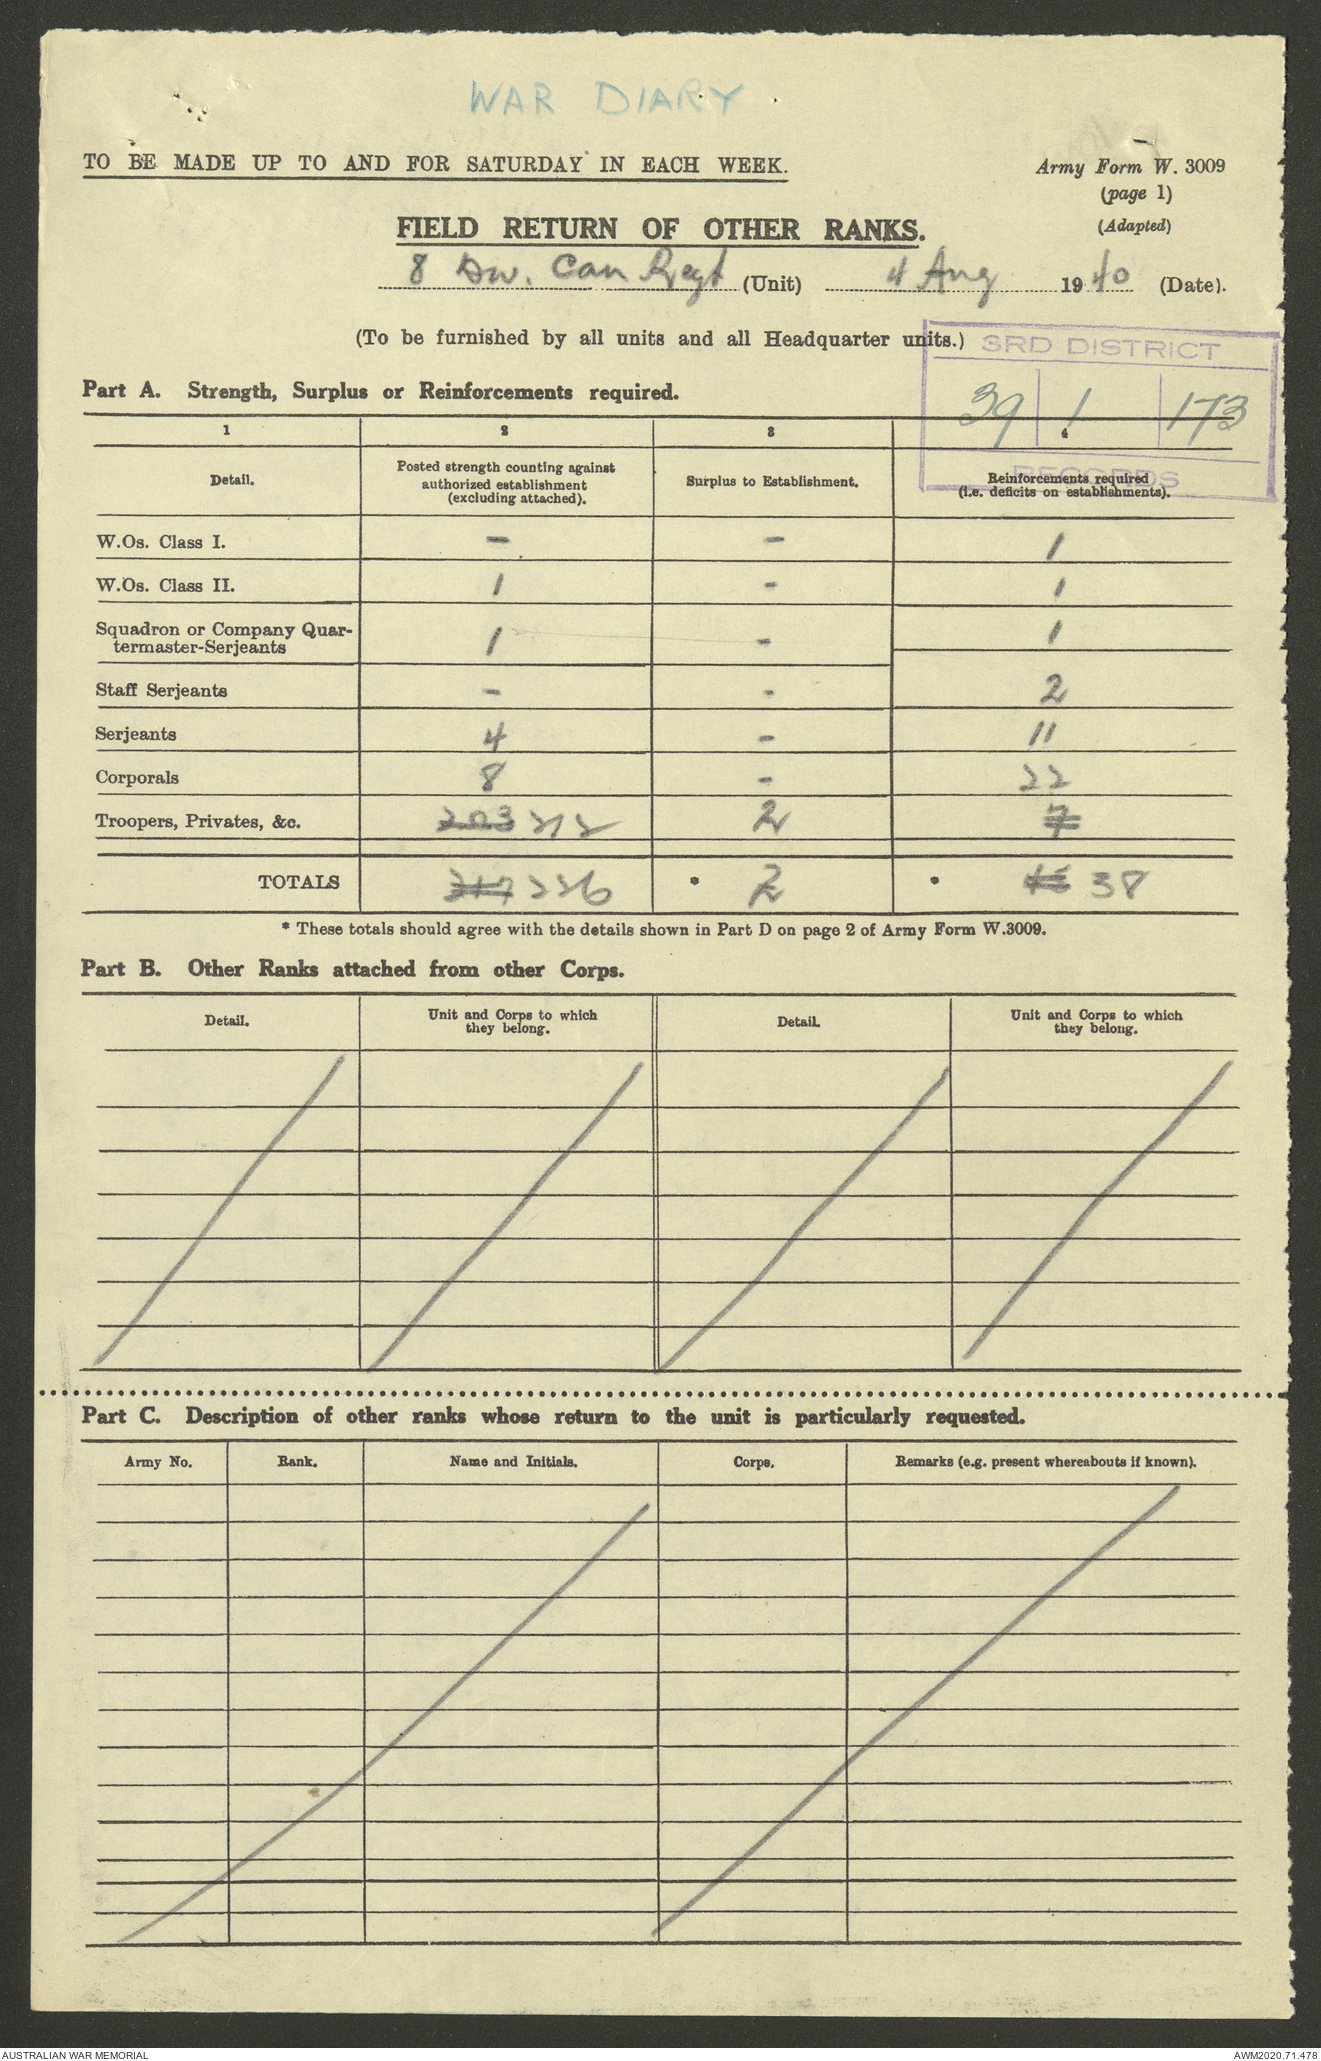 WAR DIARY
TO BE MADE UP TO AND FOR SATURDAY IN EACH WEEK.
Army Form W. 3009
(page 1)
(Adapted)
FIELD RETURN OF OTHER RANKS.
8 Div. Cav Regt (Unit) 4 Aug 1940 (Date).
(To be furnished by all units and all Headquarter units.)
3RD DISTRICT
39 1 173
RECORDS
Part A. Strength, Surplus or Reinforcements required.
1 2 3 4
Detail.
Posted strength counting against
authorized establishment
(excluding attached).
Surplus to Establishment.
Reinforcements required
(i.e. deficits on establishments).
W.Os. Class I. - - 1
W.Os. Class II. 1 - 1
Squadron or Company Quar-
termaster-Serjeants 1 - 1
Staff Serjeants - - 2
Serjeants 4 - 11
Corporals 8 - 22
Troopers, Privates, &c. 203 212 2 7
TOTALS 226 * 2 * 38
* These totals should agree with the details shown in Part D on page 2 of Army Form W.3009.
Part B. Other Ranks attached from other Corps.
Detail.
Unit and Corps to which
they belong.
Detail.
Unit and Corps to which
they belong.
Part C. Description of other ranks whose return to the unit is particularly requested.
Army No. Rank. Name and Initials. Corps. Remarks (e.g. present whereabouts if known).
AUSTRALIAN WAR MEMORIAL
AWM2020.71.478